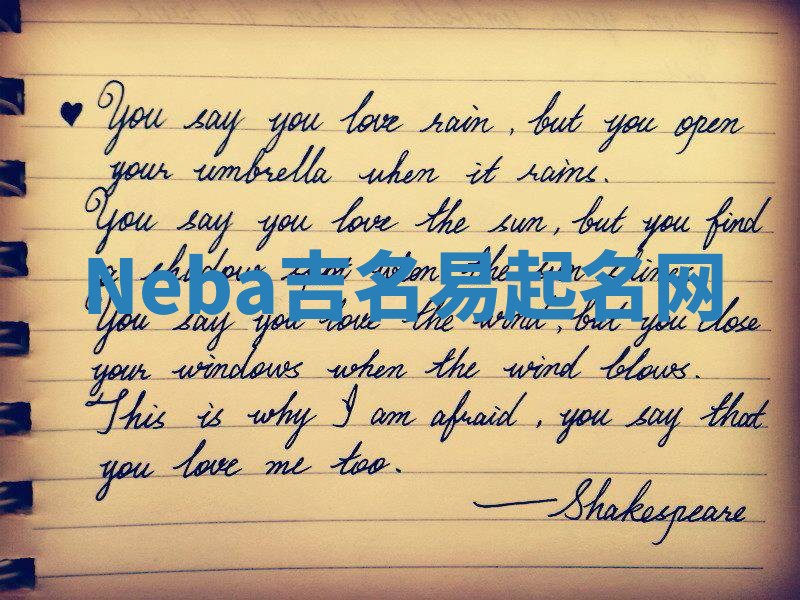 ♥ You say you love rain, but you open
your umbrella when it rains.
You say you love the sun, but you find
a shadow spot when the sun shines.
Neba吉名易起名网
You say you love the wind, but you close
your windows when the wind blows.
This is why I am afraid, you say that
you love me too.
— Shakespeare